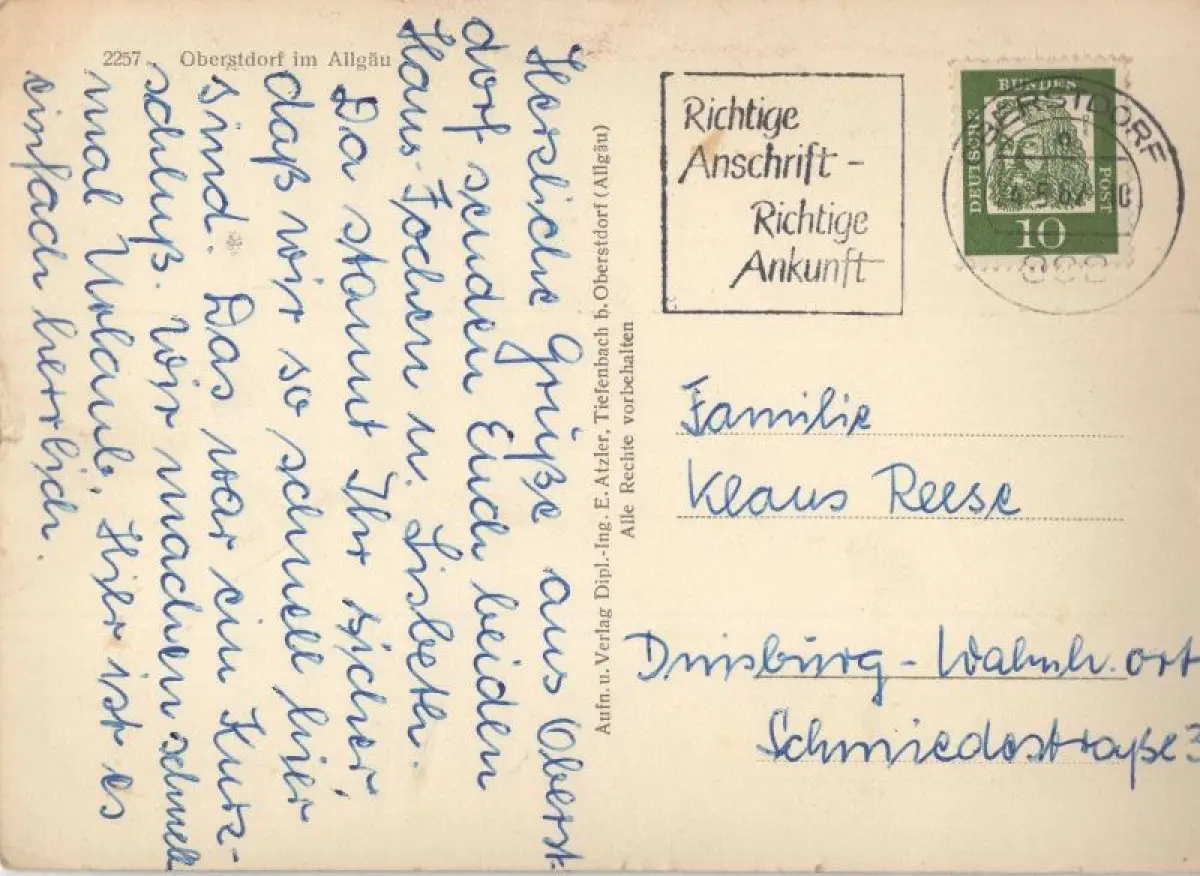 2257 Oberstdorf im Allgäu
Herzliche Grüße aus Oberst-
dorf senden Euch beiden
Haus-Jochen u. Lisbeth.
Da staunt Ihr sicher,
daß wir so schnell hier
sind. Das war ein Kurz-
schluß. Wir machen schnell
mal Urlaub. Hier ist es
einfach herrlich.
Aufn. u. Verlag Dipl.-Ing. E. Atzler, Tiefenbach b. Oberstdorf (Allgäu)
Alle Rechte vorbehalten
Richtige
Anschrift -
Richtige
Ankunft
DEUTSCHE BUNDES POST
10
OBERSTDORF
Familie
Klaus Reese
Duisburg-Wanh. ort
Schmiedestraße 3